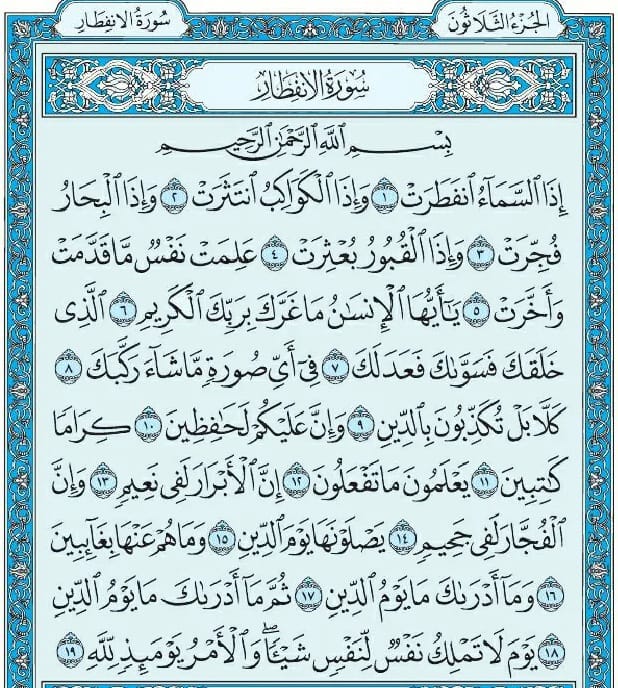 الجُزءُ الثَّلَاثُونَ
سُورَةُ الانفِطَار
سُورَةُ الانفِطَار
بِسْمِ ٱللَّهِ ٱلرَّحْمَٰنِ ٱلرَّحِيمِ
إِذَا ٱلسَّمَآءُ ٱنفَطَرَتْ ١ وَإِذَا ٱلْكَوَاكِبُ ٱنتَثَرَتْ ٢ وَإِذَا ٱلْبِحَارُ
فُجِّرَتْ ٣ وَإِذَا ٱلْقُبُورُ بُعْثِرَتْ ٤ عَلِمَتْ نَفْسٌ مَّا قَدَّمَتْ
وَأَخَّرَتْ ٥ يَٰٓأَيُّهَا ٱلْإِنسَٰنُ مَا غَرَّكَ بِرَبِّكَ ٱلْكَرِيمِ ٦ ٱلَّذِى
خَلَقَكَ فَسَوَّىٰكَ فَعَدَلَكَ ٧ فِىٓ أَىِّ صُورَةٍ مَّا شَآءَ رَكَّبَكَ ٨
كَلَّا بَلْ تُكَذِّبُونَ بِٱلدِّينِ ٩ وَإِنَّ عَلَيْكُمْ لَحَٰفِظِينَ ١٠ كِرَامًا
كَٰتِبِينَ ١١ يَعْلَمُونَ مَا تَفْعَلُونَ ١٢ إِنَّ ٱلْأَبْرَارَ لَفِى نَعِيمٍ ١٣ وَإِنَّ
ٱلْفُجَّارَ لَفِى جَحِيمٍ ١٤ يَصْلَوْنَهَا يَوْمَ ٱلدِّينِ ١٥ وَمَا هُمْ عَنْهَا بِغَآئِبِينَ
١٦ وَمَآ أَدْرَىٰكَ مَا يَوْمُ ٱلدِّينِ ١٧ ثُمَّ مَآ أَدْرَىٰكَ مَا يَوْمُ ٱلدِّينِ
١٨ يَوْمَ لَا تَمْلِكُ نَفْسٌ لِّنَفْسٍ شَيْـًٔا ۖ وَٱلْأَمْرُ يَوْمَئِذٍ لِّلَّهِ ١٩